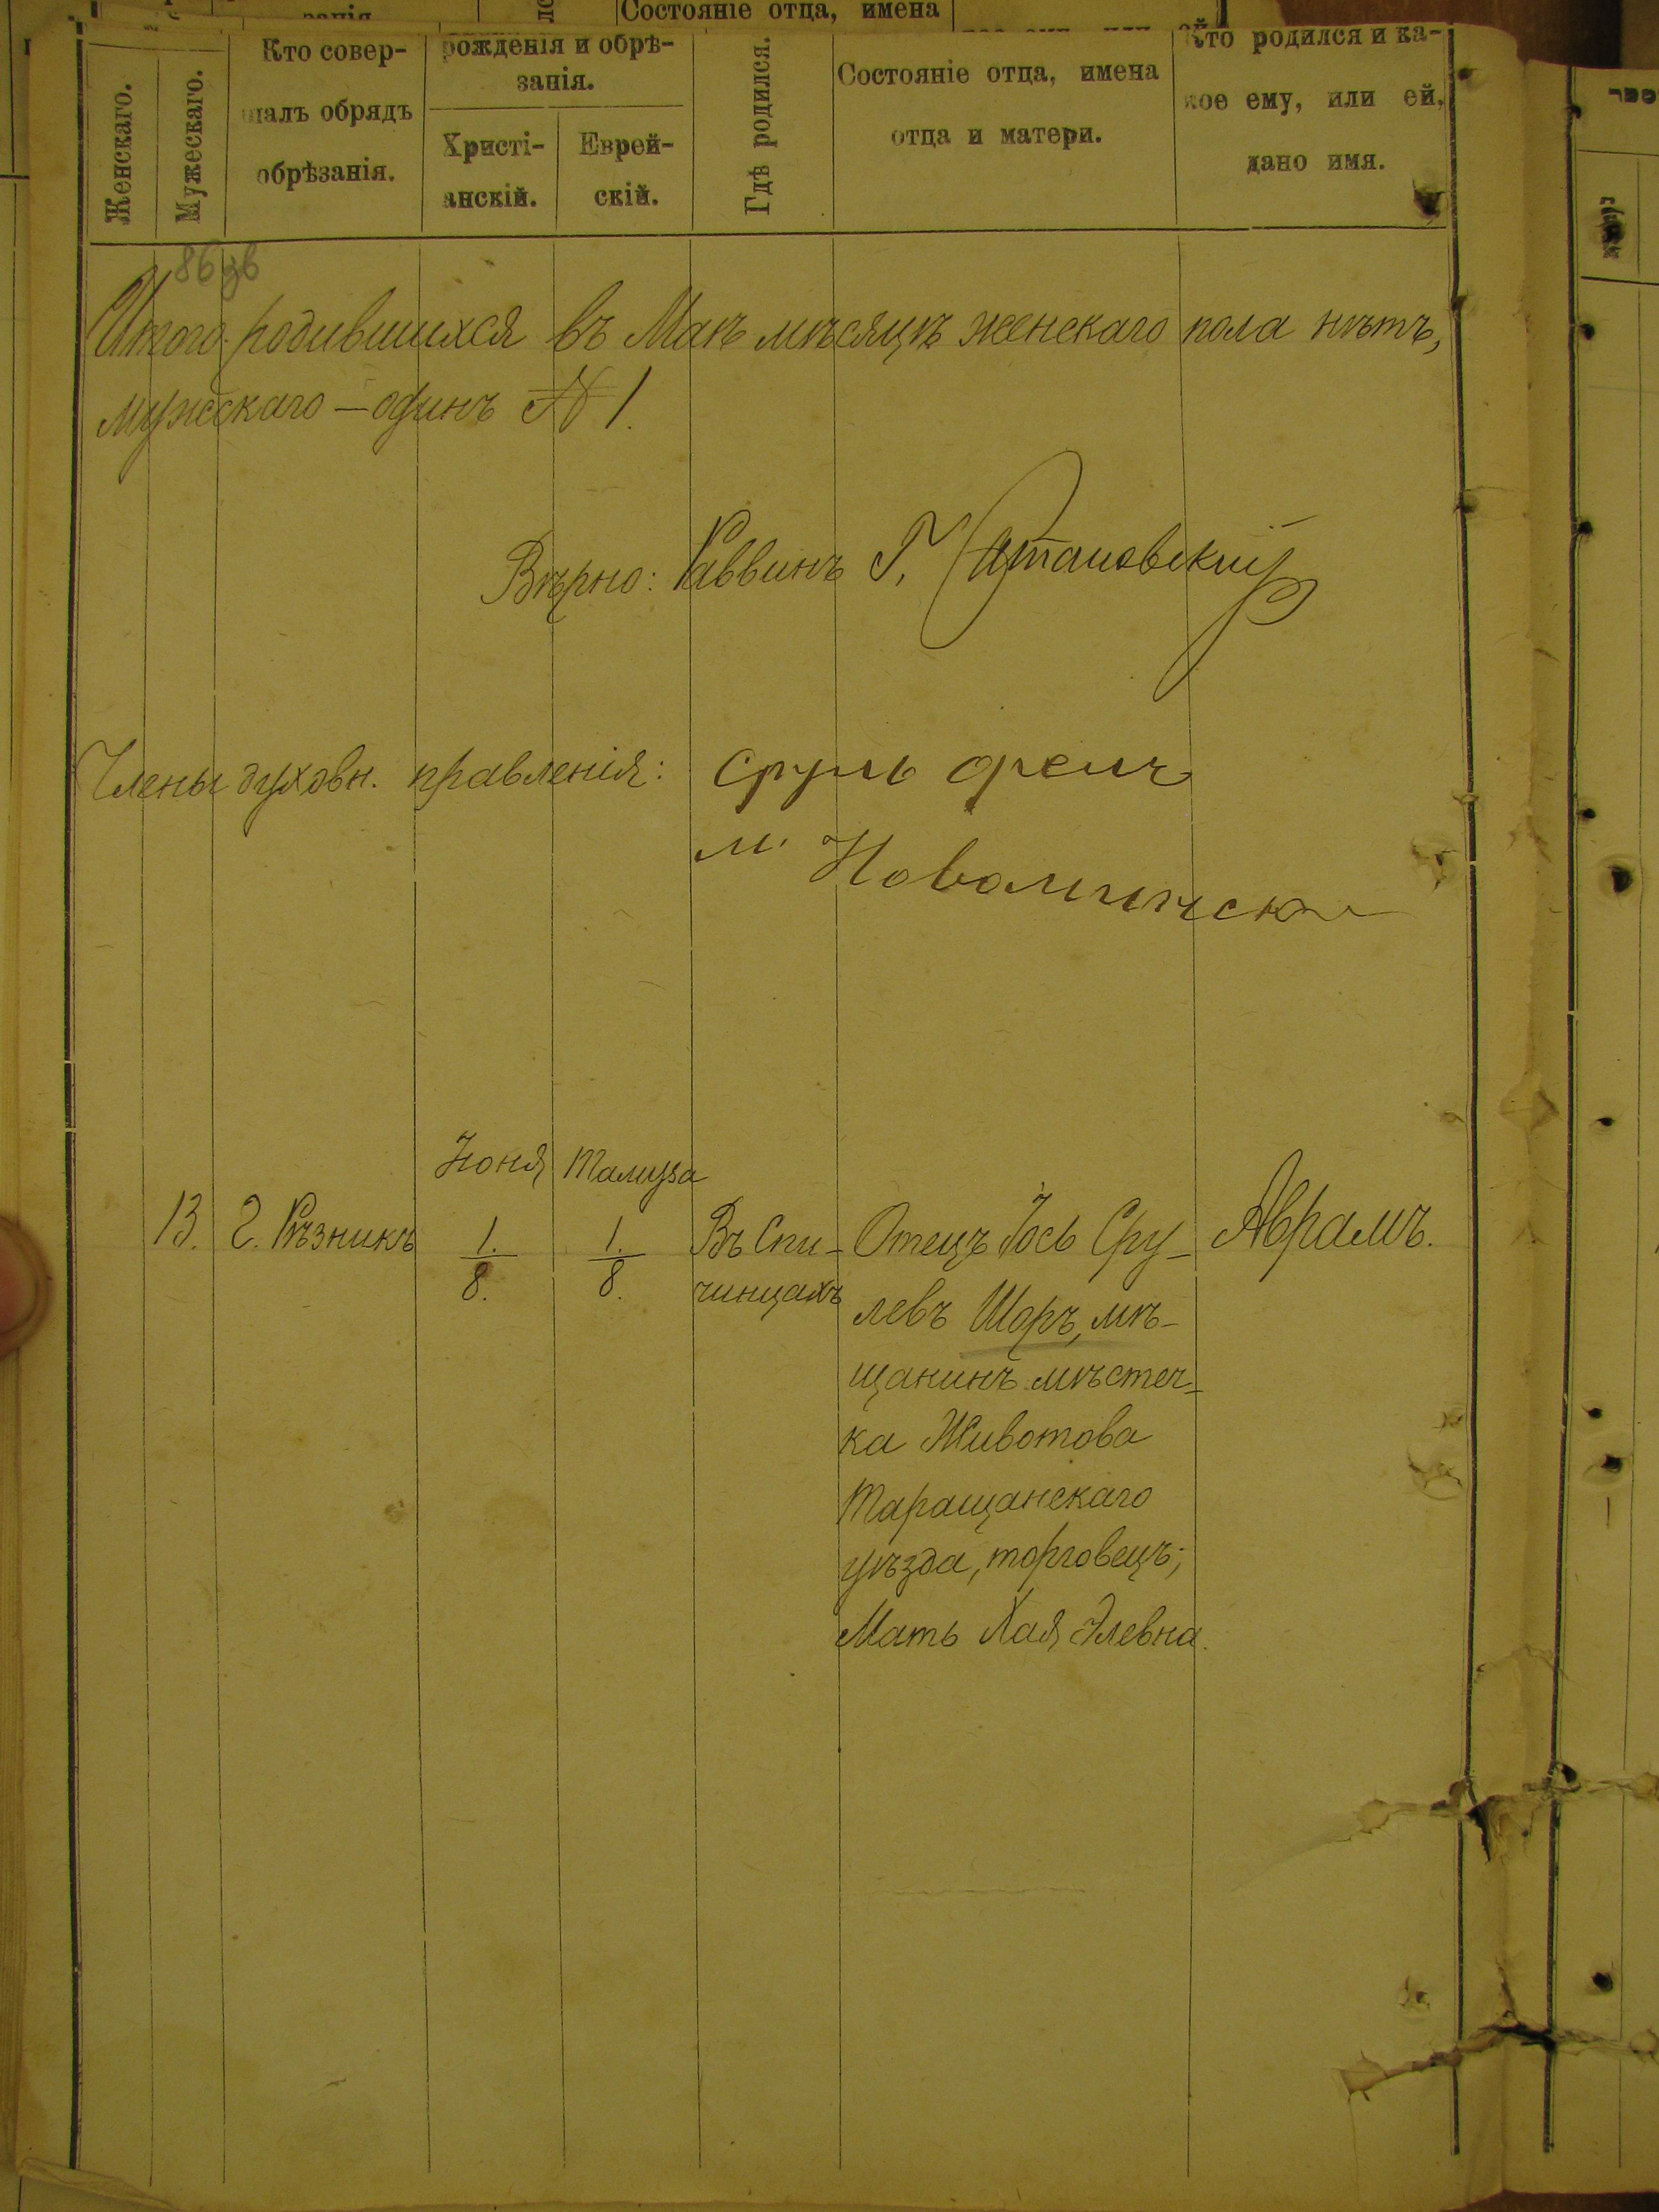 Состояніе отца, имена
Женскаго.
Мужескаго.
Кто совер-
шалъ обрядъ
обрѣзанія.
рожденія и обрѣ-
занія.
Христі-
анскій.
Еврей-
скій.
Гдѣ родился.
Состояніе отца, имена
отца и матери.
Кто родился и ка-
кое ему, или ей,
дано имя.
86 зв
Итого родившихся въ Маѣ мѣсяцѣ женскаго пола нѣтъ,
мужескаго — одинъ № 1.
Вѣрно: Раввинъ Г.
Члены духовн. правленія: Сруль
м.
Іюня Тамуза
13. Г. Рѣзникъ 1. 8. 1. 8. Въ Спи-
чинцахъ
Отецъ Іось Сру-
левъ Шоръ, мѣ-
щанинъ мѣстеч-
ка Животова
Таращанскаго
уѣзда, торговецъ;
Мать Хая Элевна.
Аврамъ.